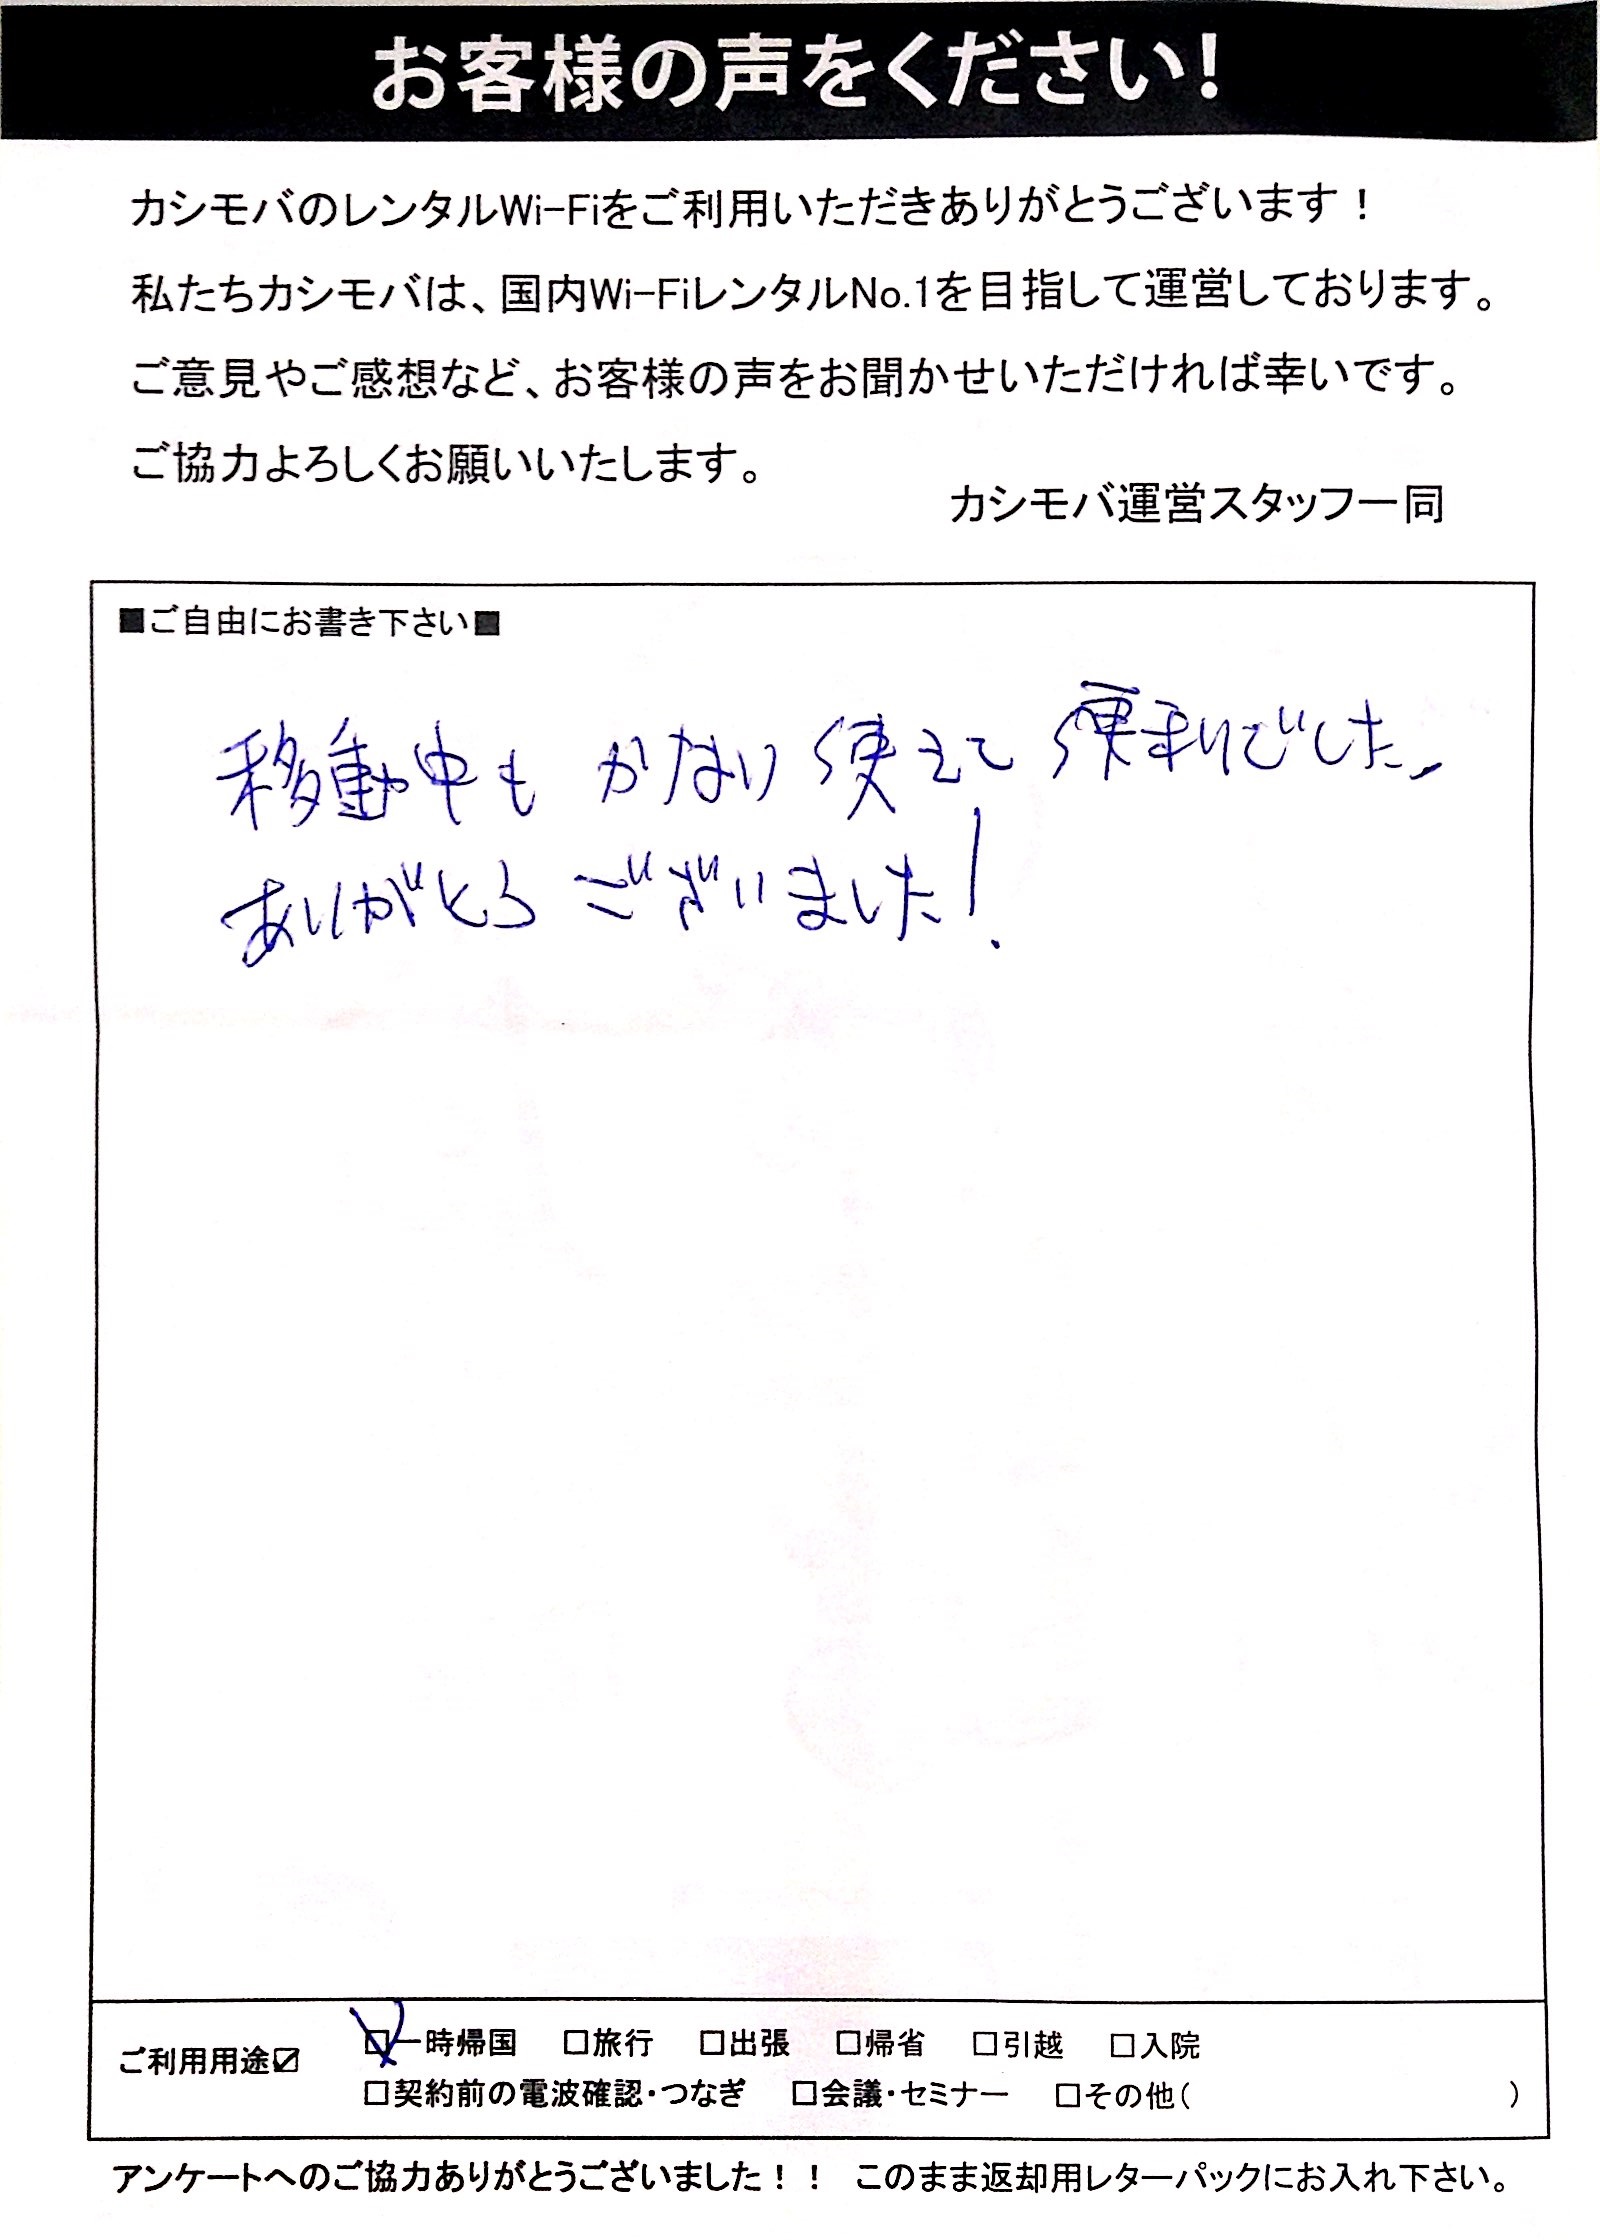 お客様の声をください!
カシモバのレンタルWi-Fiをご利用いただきありがとうございます！
私たちカシモバは、国内Wi-FiレンタルNo.1を目指して運営しております。
ご意見やご感想など、お客様の声をお聞かせいただければ幸いです。
ご協力よろしくお願いいたします。
カシモバ運営スタッフ一同
■ご自由にお書き下さい■
移動中も かなり 使えて 便利でした。
ありがとう ございました!
ご利用用途☑
☑一時帰国 □旅行 □出張 □帰省 □引越 □入院
□契約前の電波確認・つなぎ □会議・セミナー □その他( )
アンケートへのご協力ありがとうございました！！ このまま返却用レターパックにお入れ下さい。